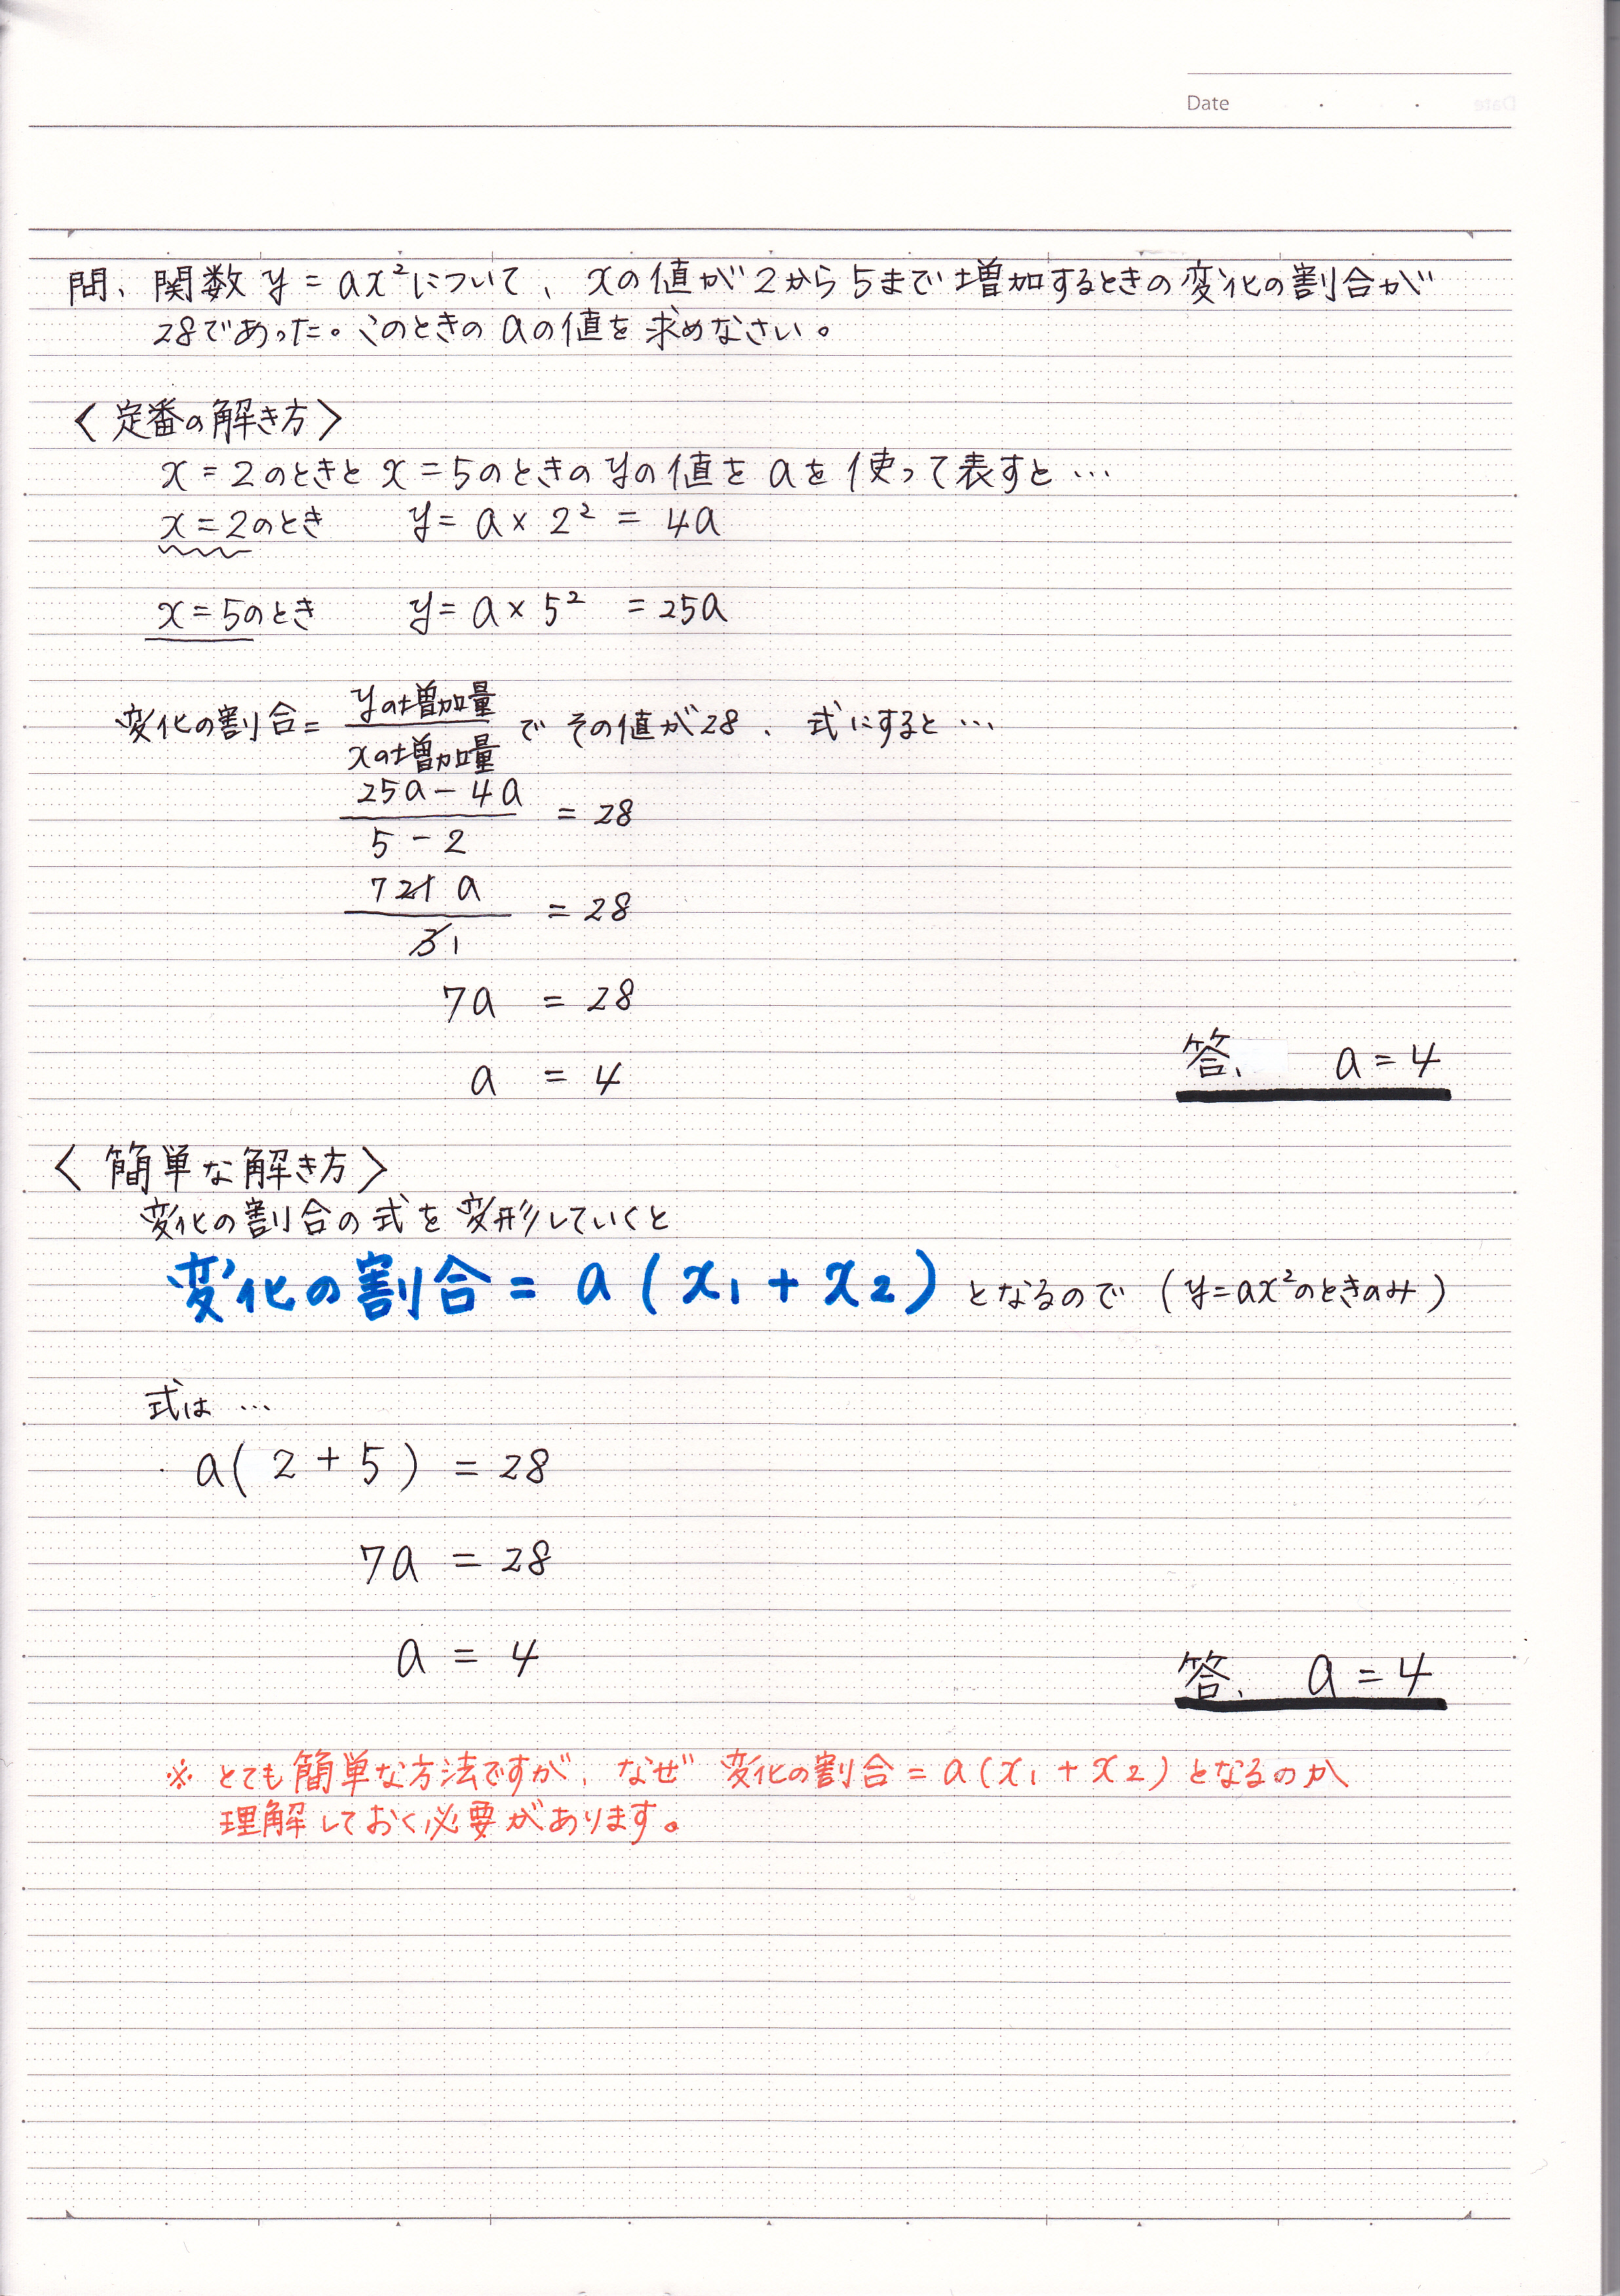 Date
問、関数 y = ax²について、xの値が2から5まで増加するときの変化の割合が
28であった。このときのaの値を求めなさい。
〈定番の解き方〉
x = 2のときと x = 5のときのyの値をaを使って表すと…
x = 2のとき y = a × 2² = 4a
x = 5のとき y = a × 5² = 25a
変化の割合 = yの増加量/xの増加量 で その値が28、式にすると…
25a - 4a/5 - 2 = 28
7 21 a/3 1 = 28
7a = 28
a = 4
答、 a = 4
〈簡単な解き方〉
変化の割合の式を変形していくと
変化の割合 = a(x₁ + x₂) となるので (y=ax²のときのみ)
式は…
a( 2 + 5 ) = 28
7a = 28
a = 4
答、 a = 4
※ とても簡単な方法ですが、なぜ 変化の割合 = a(x₁ + x₂)となるのか
理解しておく必要があります。